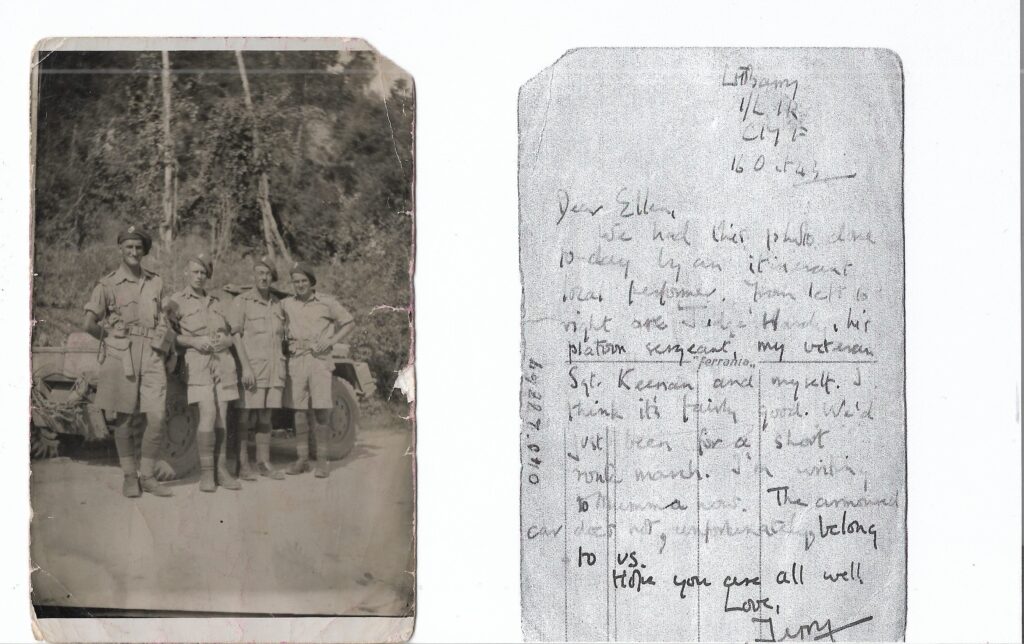 Lt Barry
1/L IR
16 Oct 43
Dear Ellen,
We had this photo done
to-day by an itinerant
performer. From left to
right are Judge Hardy, his
platoon sergeant, my veteran
"ferrania"
Sgt. Keenan and myself. I
think it's fairly good. We'd
just been for a short
route march. I'm writing
to Mumma now. The armoured
car does not, unfortunately, belong
to us.
Hope you are all well
Love,
Terry